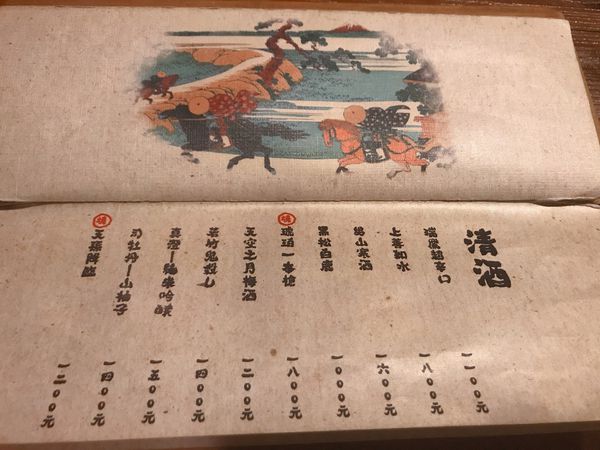 清酒
瑞鷹超辛口 一一〇〇元
上善如水 一八〇〇元
山寒酒 一六〇〇元
黑松白鹿 一〇〇〇元
一番槍 一八〇〇元
天空之月梅酒 一二〇〇元
若竹鬼殺し 一四〇〇元
真澄ー純米吟釀 一五〇〇元
司牡丹ー山柚子 一四〇〇元
天孫降臨 一二〇〇元